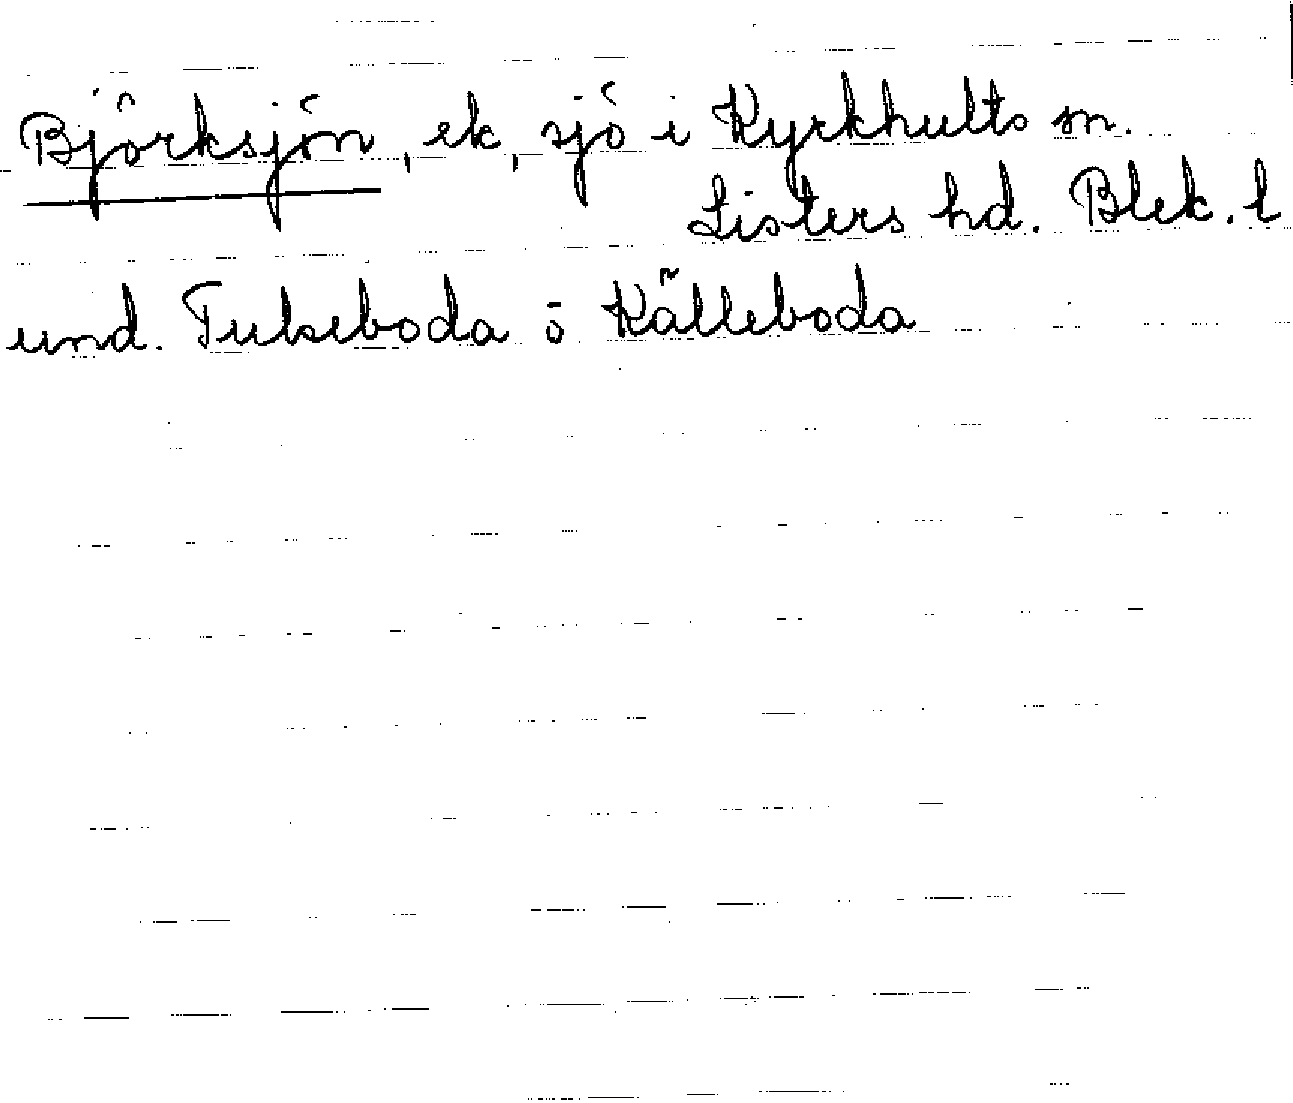 Björksjön, ek, sjö i Kyrkhults sn.
Listers hd. Blek. l
und. Tulseboda ö Källeboda